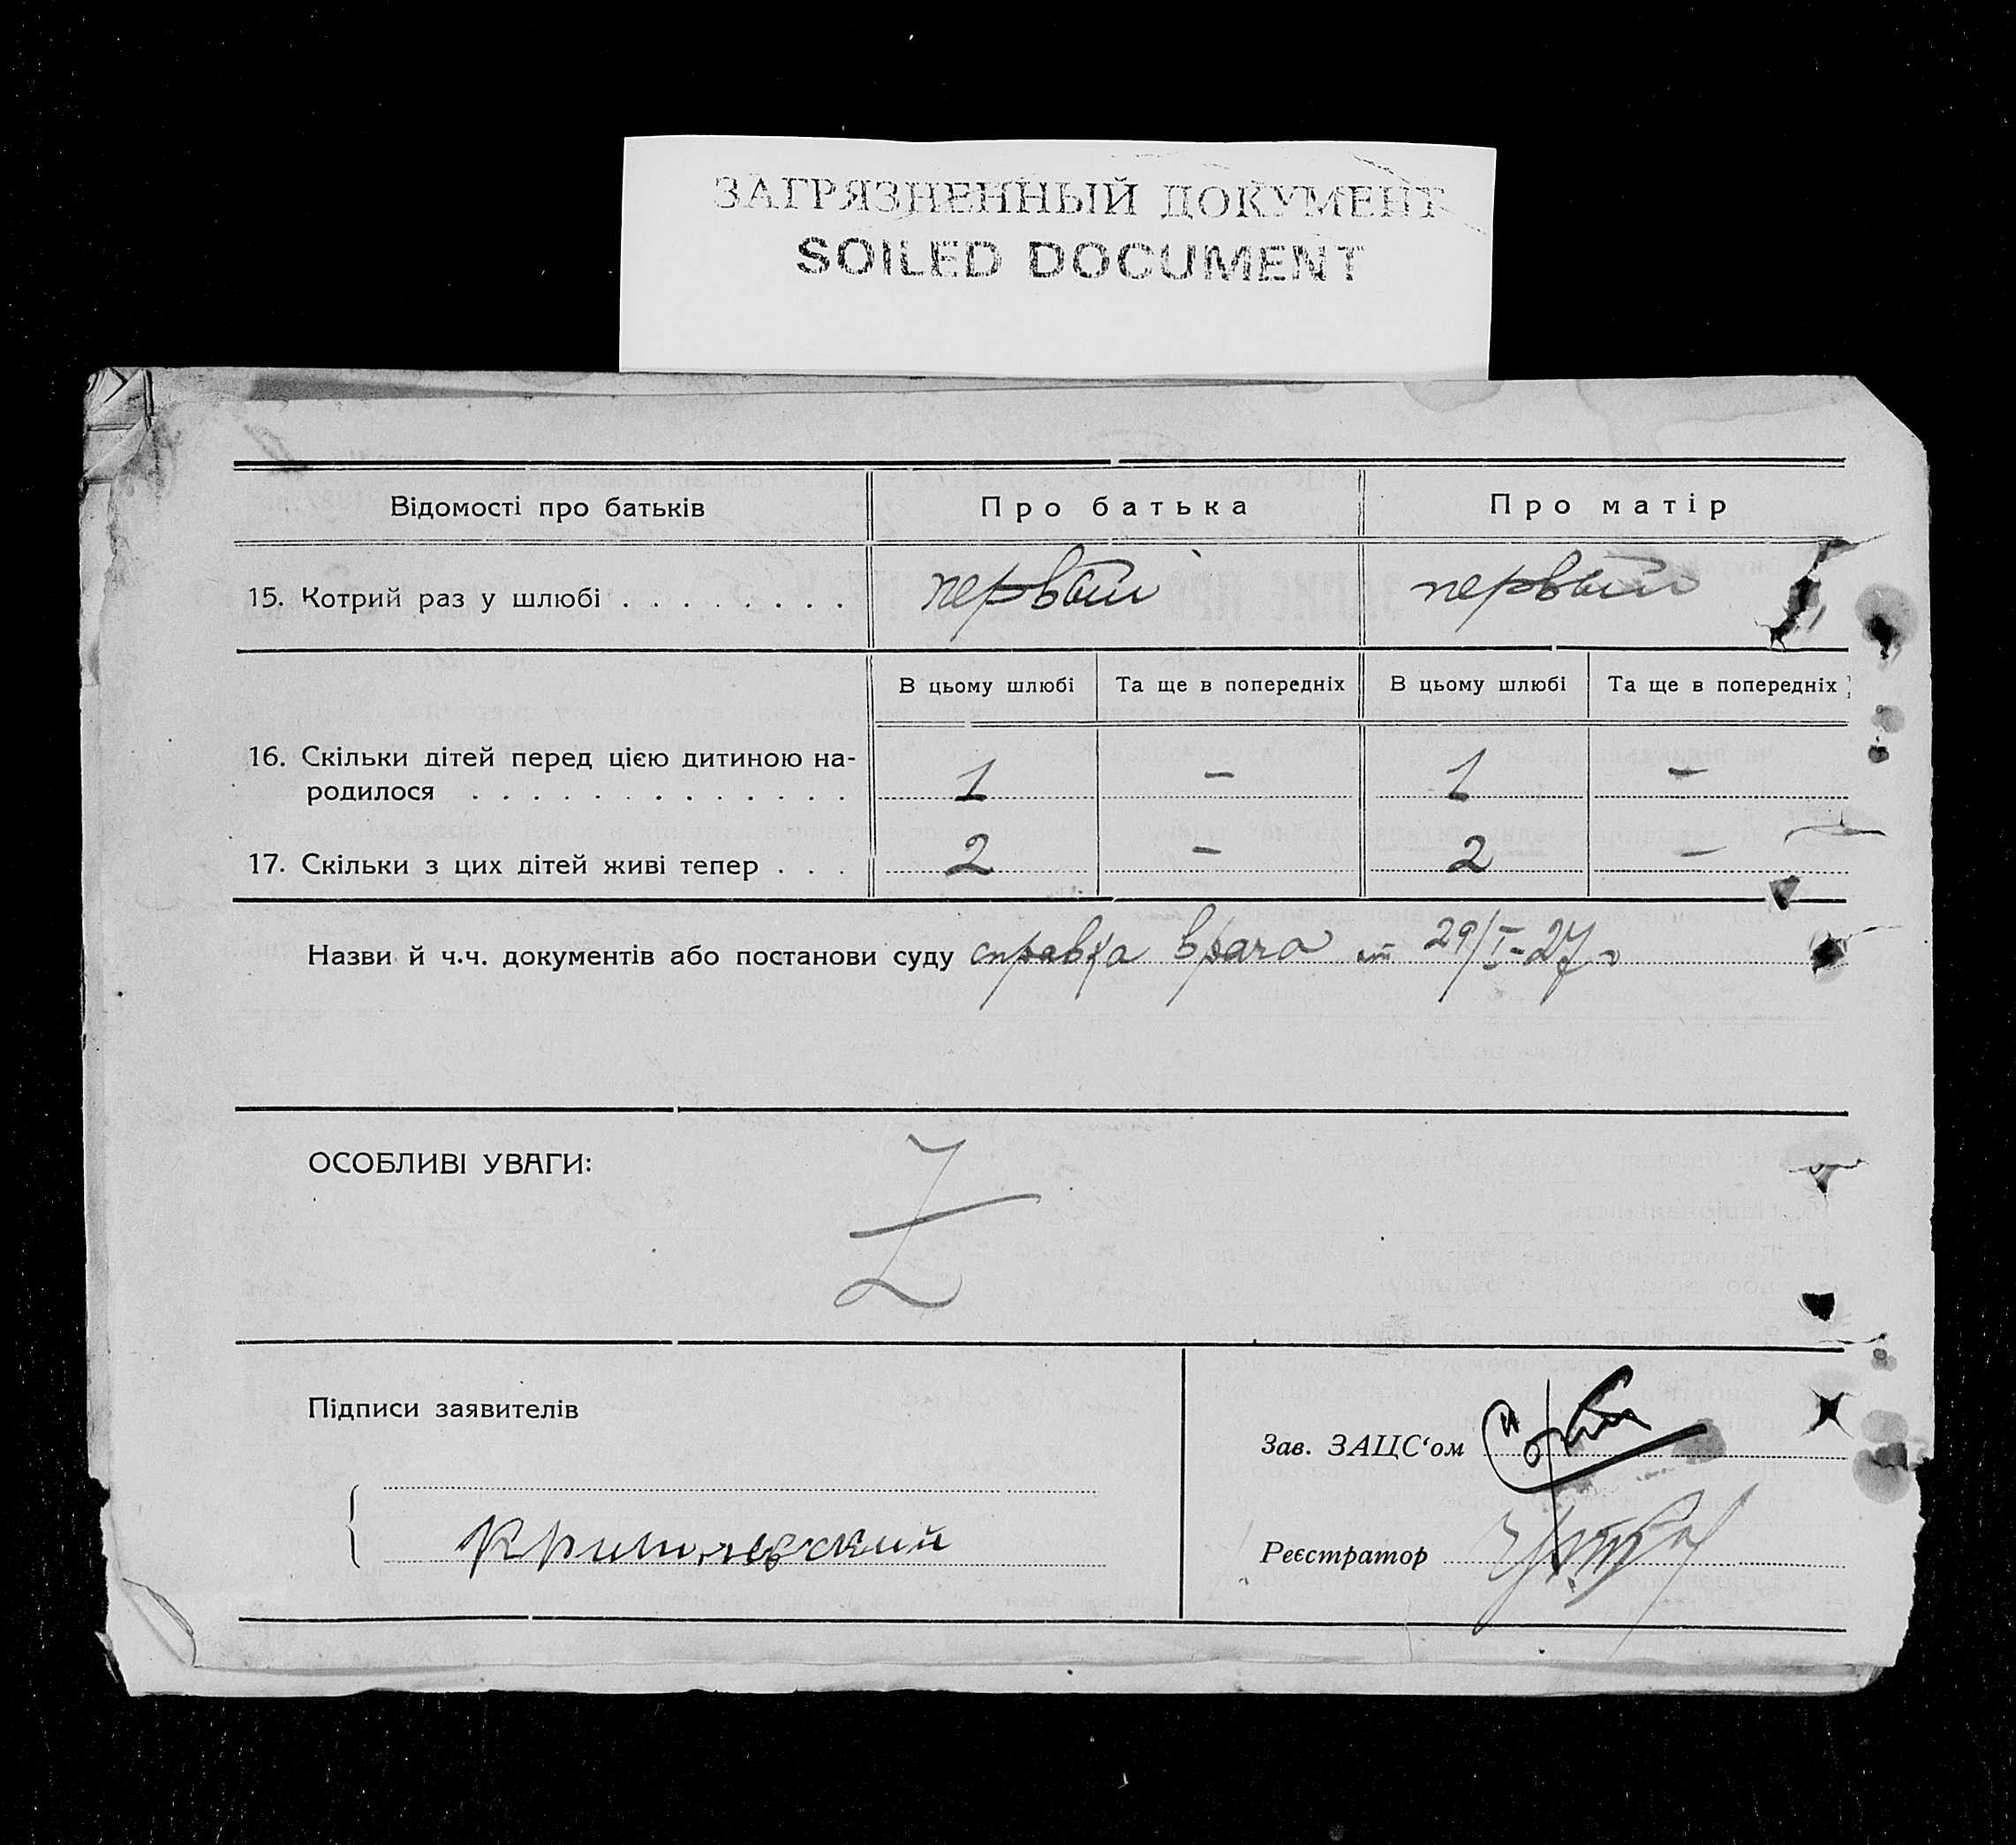 ЗАГРЯЗНЕННЫЙ ДОКУМЕНТ
SOILED DOCUMENT
Відомості про батьків Про батька Про матір
15. Котрий раз у шлюбі . . . . . . . . первый первый
В цьому шлюбі Та ще в попередніх В цьому шлюбі Та ще в попередніх
16. Скільки дітей перед цією дитиною на-
родилося . . . . . . . . . . . . . 1 – 1 –
17. Скільки з цих дітей живі тепер . . . 2 – 2 –
Назви й ч.ч. документів або постанови суду справка врача от 29/I-27 г
ОСОБЛИВІ УВАГИ: Z
Підписи заявителів
Зав. ЗАЦС‘ом
Реєстратор